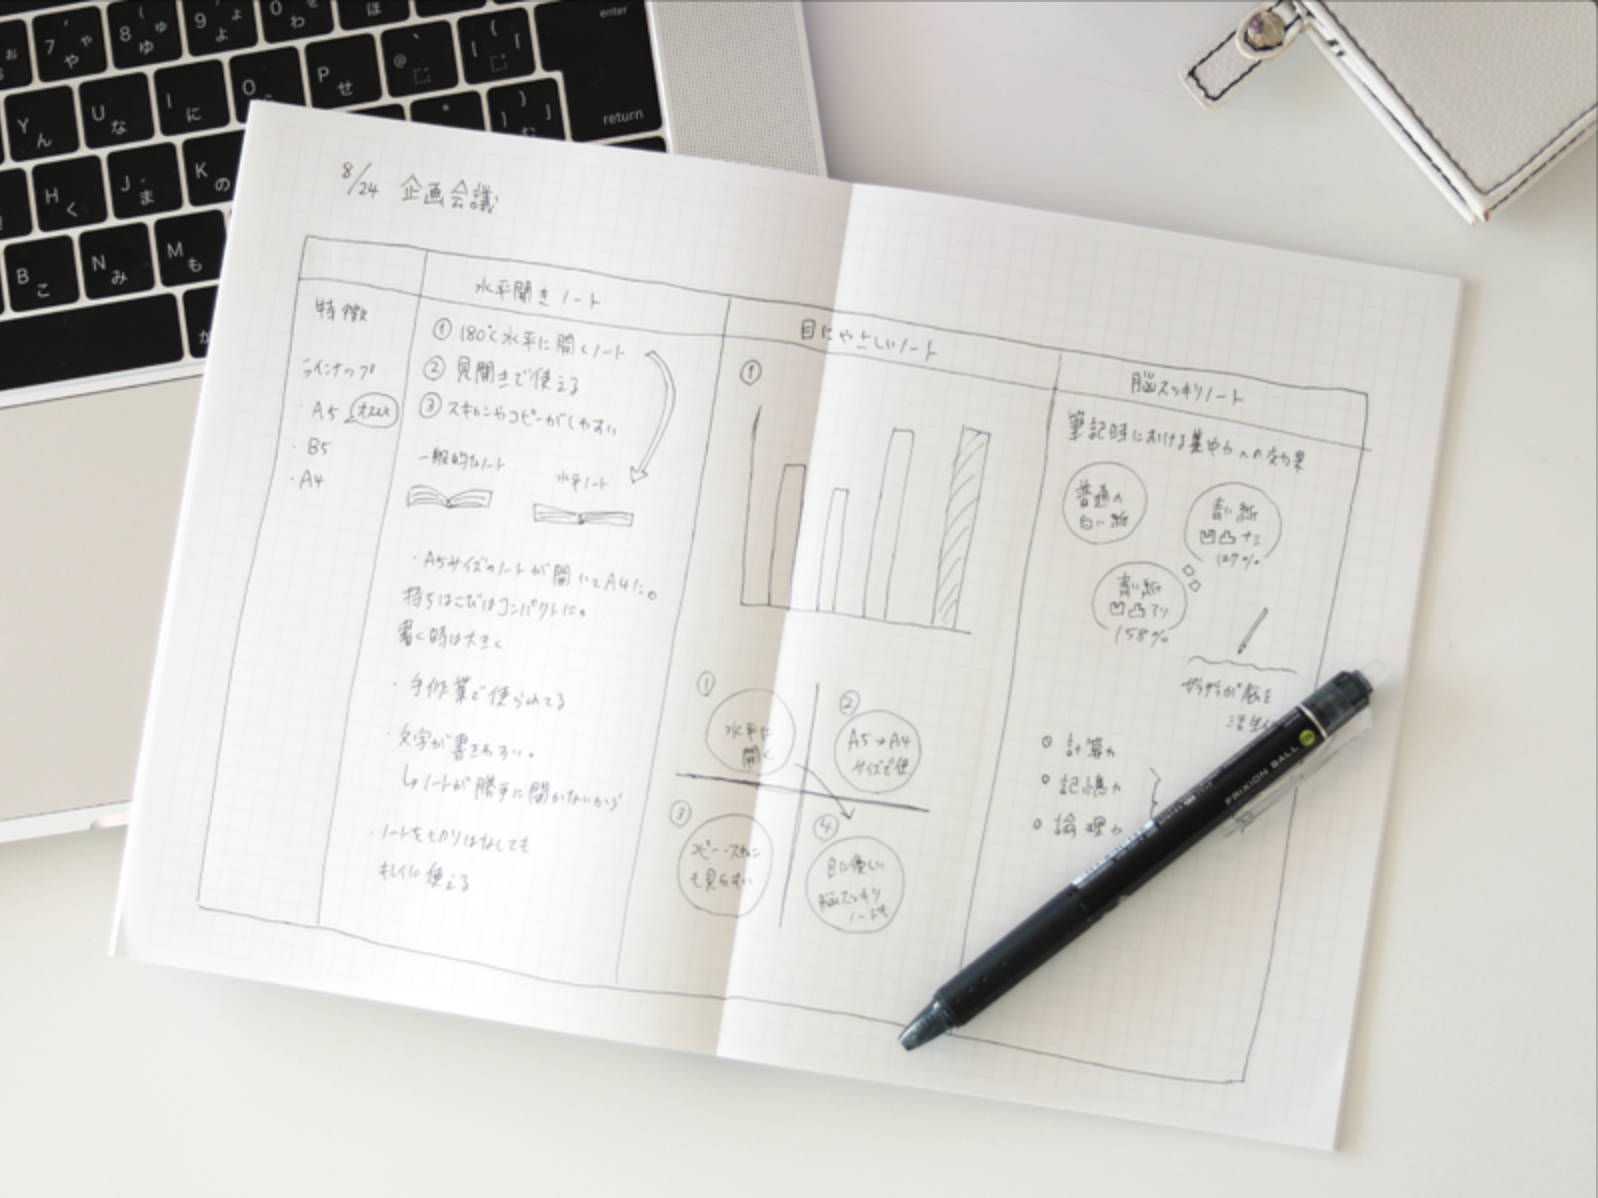 enter
return
7 や
8 ゆ
9 よ
0 わ
ほ
Y ん
U な
I に
O
P せ
@
H く
J ま
K の
B こ
N み
M も
8/24 企画会議
水平開きノート
目にやさしいノート
脳スッキリノート
特徴
ラインナップ
・A5
・B5
・A4
① 180°く水平に開くノート
② 見開きで使える
③ スキャンやコピーがしやすい
一般的なノート
水平ノート
・A5サイズのノートが開いてA4に。
持ちはこびはコンパクトに。
書く時は大きく
・手作業で使られてる
・文字が書きやすい。
↳ノートが勝手に閉かないから
・ノートを
キレイに使える
①
① 水平に
開く
② A5→A4
サイズで使
③ コピー・スキャン
も見らすい
④ 目に優しい
脳スッキリ
ノートも
筆記時における集中力への効果
普通の
白い紙
青い紙
凹凸ナミ
127%
青い紙
凹凸アリ
158%
ザラザラが脳を
活性
計算力
記憶力
論理力
FRIXION BALL